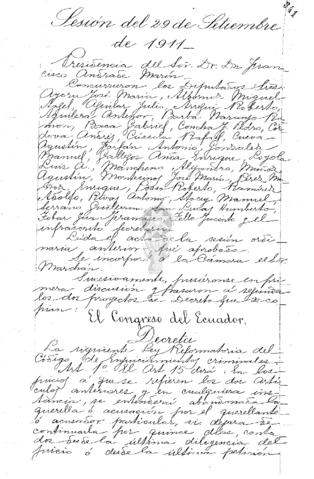 341
Sesión del 29 de Setiembre
de 1911_
Presidencia del Sor. Dr. Dn. Fran-
cisco Andrade Marín.
Concurrieron los Diputados Sres.
Ayora José María, Miguel
Aguilar Julio, Arregui Roberto,
Aguilera Antenor, Barba Naranjo Ra-
món, Baca Gabriel, Concha J. Pedro, Cór-
dova Andrés, Rafael, Cueva
Agustín, Farfán Antonio, González
Manuel, Gallegos Anda Enrique, Loyola
Luis A., Mancheno Alejandro, Muñoz
Agustín, Montesinos José María, Pérez Mu-
ñoz Enrique, Posso Roberto, Ramírez
Adolfo, Rivas Antonio, Stacey Manuel,
Serrano
Tobar Juan Francisco, Tello Vicente y el
infrascrito Secretario.
Leída el acta de la sesión ordi-
naria anterior, fué aprobada.
Se incorporó a la Cámara el Sor.
Marchán.
Sucesivamente, pusiéronse en pri-
mera discusión y pasaron a segunda
los dos proyectos de Decreto que se co-
pian:
El Congreso del Ecuador,
Decreta
La siguiente Ley Reformatoria del
Código de Enjuiciamientos criminales.
Art. 1º El Art. 15 dirá: En los
juicios a que se refieren los dos artí-
culos anteriores, y en cualquiera ins-
tancia, se entenderá abandonada la
querella o acusación por el querellante
o acusador particular, si dejara de
continuarla por quince días, conta-
dos desde la última diligencia del
juicio o desde la última petición